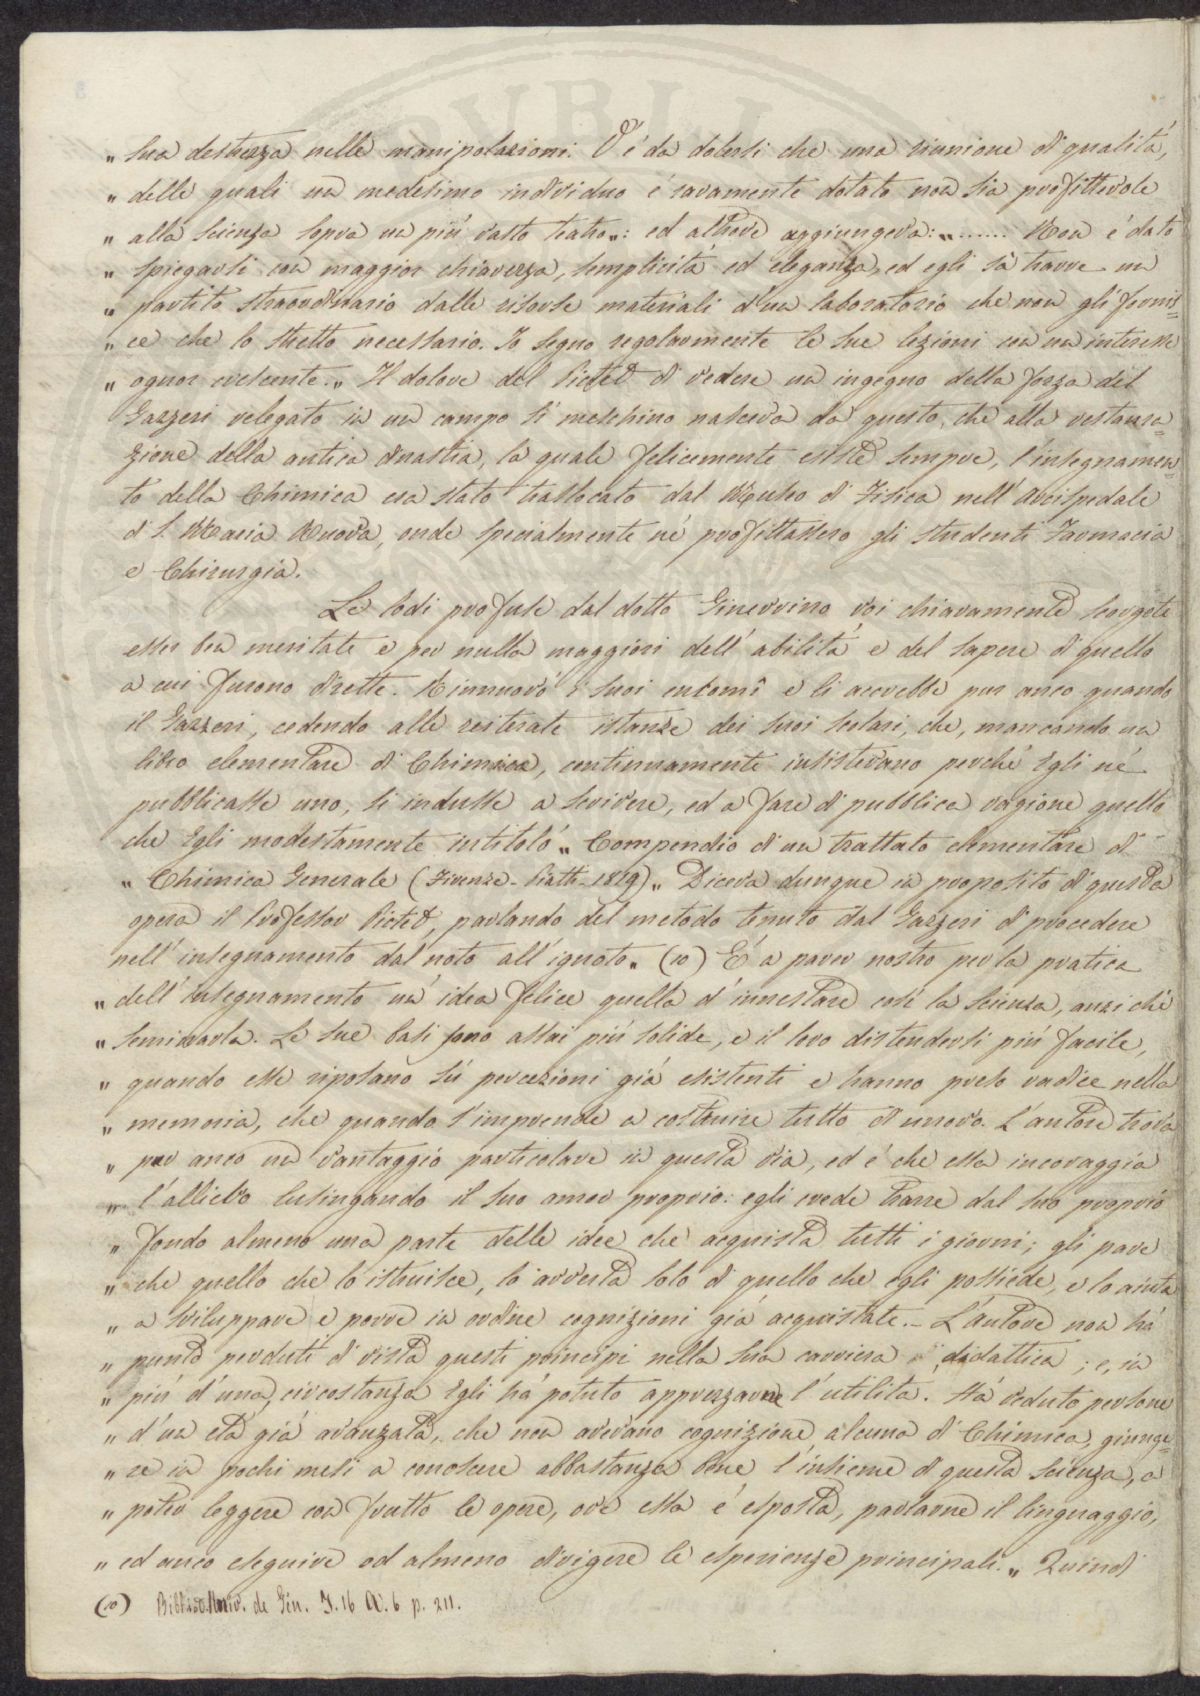 „ sua destrezza nelle manipolazioni. V'è da dolersi che una riunione di qualità,
„ delle quali un medesimo individuo è raramente dotato non sia profittevole
„ alla scienza sopra un più vasto teatro„: ed altrove aggiungeva: „....... Non è dato
„ spiegarsi con maggior chiarezza, semplicità ed eleganza, ed egli sà trarre un
„ partito straordinario dalle risorse materiali d'un laboratorio che non gli fornis=
„ ce che lo stretto necessario. Io seguo regolarmente le sue lezioni con un interesse
„ ognor crescente.„ Il dolore del Pictet di vedere un ingegno della forza del
Gazzeri relegato in un campo sì meschino nasceva da questo, che alla restaura=
zione della antica dinastia, la quale felicemente esiste sempre, l'insegnamen=
to della Chimica era stato traslocato dal Museo di Fisica nell'Arcispedale
di S. Maria Nuova, onde specialmente ne profittassero gli studenti Farmacia
e Chirurgia.
Le lodi profuse dal dotto Ginevrino voi chiaramente scorgete
esser ben meritate e per nulla maggiori dell'abilità e del sapere di quello
a cui furono dirette. Rinnuovò i suoi encomî e li accrebbe pur anco quando
il Gazzeri, cedendo alle reiterate istanze dei suoi scolari, che, mancando un
libro elementare di Chimica, continuamente insistevano perchè Egli ne
pubblicasse uno, si indusse a scrivere, ed a fare di pubblica ragione quello
che Egli modestamente intitolò „ Compendio di un trattato elementare di
„ Chimica Generale (Firenze - Piatti - 1819)„ Diceva dunque in proposito di questa
opera il Professor Pictet, parlando del metodo tenuto dal Gazzeri di procedere
nell'insegnamento dal noto all'ignoto„ (10) È a parer nostro per la pratica
„ dell'insegnamento un'idea felice quella d'innestare così la Scienza, anzichè
„ seminarla. Le sue basi sono assai più solide, e il loro distendersi più facile,
„ quando esse riposano sù percezioni già esistenti e hanno preso radice nella
„ memoria, che quando s'imprende a costruire tutto di nuovo. L'autore trova
„ pur anco un vantaggio particolare in questa via, ed è che essa incoraggia
„ l'allievo lusingando il suo amor proprio: egli crede trarre dal suo proprio
„ fondo almeno una parte delle idee che acquista tutti i giorni; gli pare
„ che quello che lo istruisce, lo avverta solo di quello che egli possiede, e lo aiuta
„ a sviluppare e porre in ordine cognizioni già acquistate.– L'autore non hà
„ punto perduti di vista questi principi nella sua carriera didattica; e, in
„ più d'una circostanza Egli hà potuto apprezzarne l'utilità. Hà veduto persone
„ d'un età già avanzata, che non avevano cognizione alcuna di Chimica, giunge=
„ re in pochi mesi a conoscere abbastanza bene l'insieme di questa Scienza, a
„ poter leggere con frutto le opere, ove essa è esposta, parlarne il linguaggio,
„ ed anco eseguire od almeno dirigere le esperienze principali.„ Quindi
(10) Bibliot. Univ. de Gin. T. 16 N. 6 p. 211.